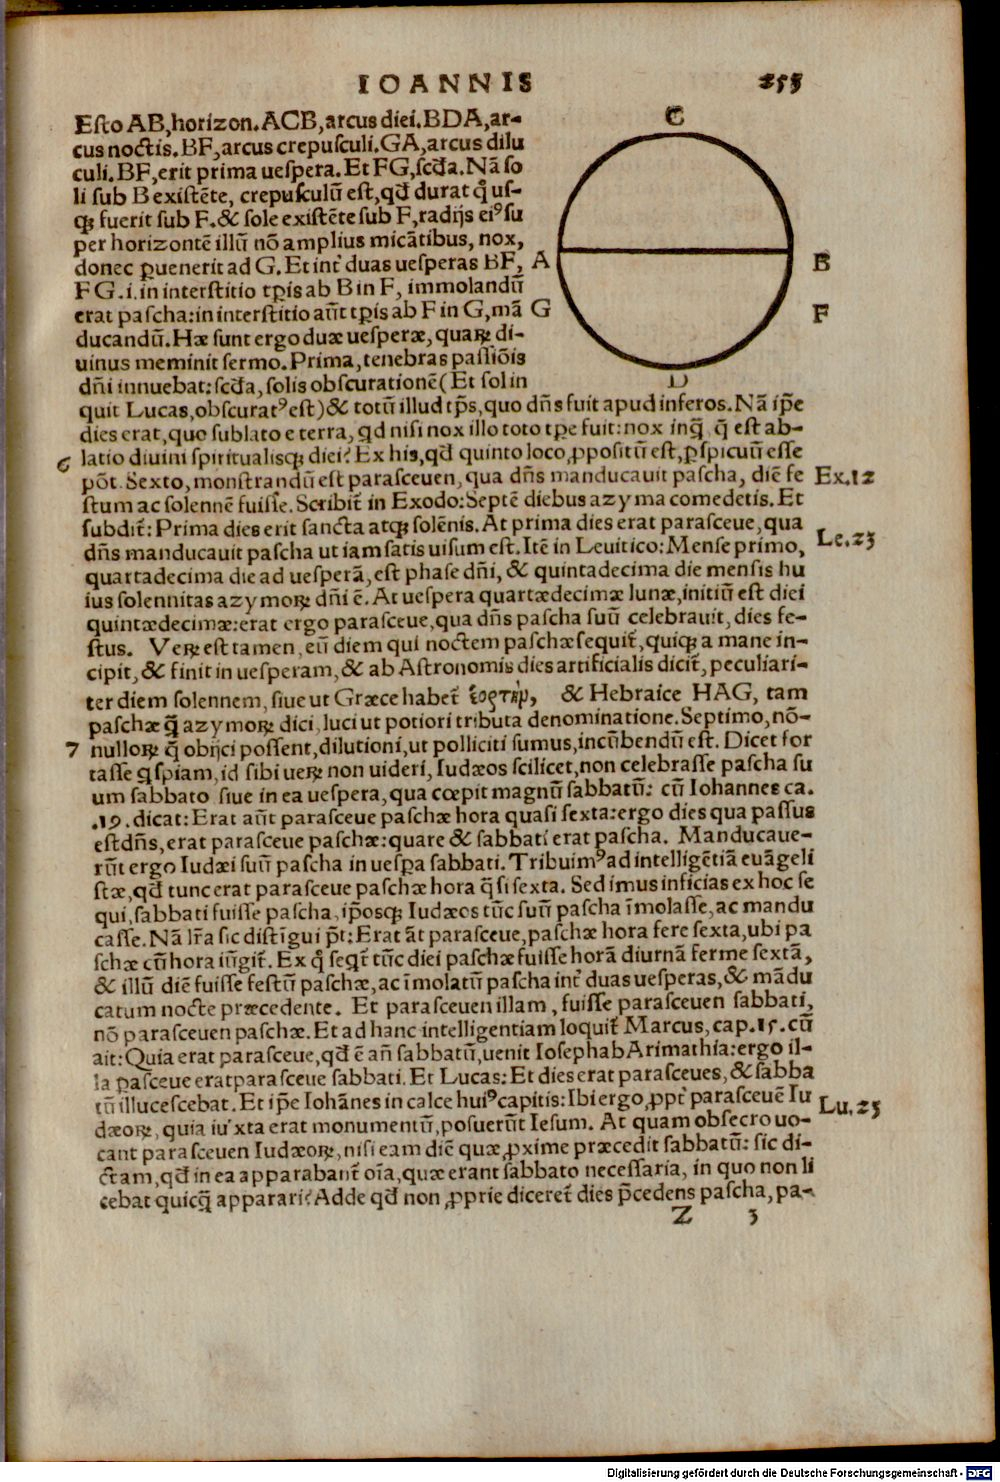 IOANNIS 255
C
Esto AB, horizon. ACB, arcus diei. BDA, ar-
cus noctis. BF, arcus crepusculi. GA, arcus dilu
culi. BF, erit prima uespera. Et FG, scďa. Nā so
li sub B existēte, crepusculū est, qđ durat q̊ us-
qꝫ fuerit sub F. & sole existēte sub F, radijs eiꝰ su
per horizontē illū nō amplius micātibus, nox,
donec ꝑuenerit ad G. Et int̄ duas uesperas BF, A B
FG .i. in interstitio tꝑis ab B in F, immolandū
erat pascha: in interstitio aūt tꝑis ab F in G, mā G F
ducandū. Hæ sunt ergo duæ uesperæ, quaꝝ di-
uinus meminit sermo. Prima, tenebras passiōis
dñi innuebat: scďa, solis obscurationē (Et sol in D
quit Lucas, obscuratꝰ est) & totū illud tp̄s, quo dñs fuit apud inferos. Nā ip̄e
dies erat, quo sublato e terra, qd nisi nox illo toto tꝑe fuit: nox inq̄ q̄ est ab-
6 latio diuini spiritualisqꝫ diei? Ex his, qđ quinto loco, ꝓpositū est, ꝑspicuū esse
pōt. Sexto, monstrandū est parasceuen, qua dñs manducauit pascha, diē fe Ex. 12
stum ac solennē fuisse. Scribit̄ in Exodo: Septē diebus azyma comedetis. Et
subdit̄: Prima dies erit sancta atqꝫ solēnis. At prima dies erat parasceue, qua
dñs manducauit pascha ut iam satis uisum est. Itē in Leuitico: Mense primo, Le. 23
quartadecima die ad uesperā, est phase dñi, & quintadecima die mensis hu
ius solennitas azymoꝝ dñi ē. At uespera quartædecimæ lunæ, initiū est diei
quintædecimæ: erat ergo parasceue, qua dñs pascha suū celebrauit, dies fe-
stus. Veꝝ est tamen, eū diem qui noctem paschæ sequit̄, quiqꝫ a mane in-
cipit, & finit in uesperam, & ab Astronomis dies artificialis dicit̄, peculiari-
ter diem solennem, siue ut Græce habet̄ ἑορτὴν, & Hebraice HAG, tam
paschæ q̄ azymoꝝ dici, luci ut potiori tributa denominatione. Septimo, nō-
7 nulloꝝ q̄ obijci possent, dilutioni, ut polliciti sumus, incūbendū est. Dicet for
tasse qspiam, id sibi ueꝝ non uideri, Iudæos scilicet, non celebrasse pascha su
um sabbato siue in ea uespera, qua cœpit magnū sabbatū: cū Iohannes ca.
.19. dicat: Erat aūt parasceue paschæ hora quasi sexta: ergo dies qua passus
est dñs, erat parasceue paschæ: quare & sabbati erat pascha. Manducaue-
rūt ergo Iudæi suū pascha in uesꝑa sabbati. Tribuimꝰ ad intelligētiā euāgeli
stæ, qđ tunc erat parasceue paschæ hora q̄si sexta. Sed imus inficias ex hoc se
qui, sabbati fuisse pascha, ip̄osqꝫ Iudæos tūc suū pascha īmolasse, ac mandu
casse. Nā lr̄a sic distīgui p̄t: Erat āt parasceue, paschæ hora fere sexta, ubi pa
schæ cū hora iūgit̄. Ex q̊ seqt̄ tūc diei paschæ fuisse horā diurnā ferme sextā,
& illū diē fuisse festū paschæ, ac īmolatū pascha int̄ duas uesperas, & mādu
catum nocte præcedente. Et parasceuen illam, fuisse parasceuen sabbati,
nō parasceuen paschæ. Et ad hanc intelligentiam loquit̄ Marcus, cap. 15. cū
ait: Quia erat parasceue, qđ ē añ sabbatū, uenit Ioseph ab Arimathia: ergo il-
la ꝑasceue erat parasceue sabbati. Et Lucas: Et dies erat parasceues, & sabba
tū illucescebat. Et ip̄e Iohānes in calce huiꝰ capitis: Ibi ergo, ꝓpt̄ parasceuē Iu Lu. 23
dæoꝝ, quia iuxta erat monumentū, posuerūt Iesum. At quam obsecro uo-
cant parasceuen Iudæoꝝ, nisi eam diē quæ ꝓxime præcedit sabbatū: sic di-
ctam, qđ in ea apparabant̄ oīa, quæ erant sabbato necessaria, in quo non li
cebat quicq̄ apparari? Adde qđ non ꝓprie diceret̄ dies p̄cedens pascha, pa-
Z 3
Digitalisierung gefördert durch die Deutsche Forschungsgemeinschaft - DFG